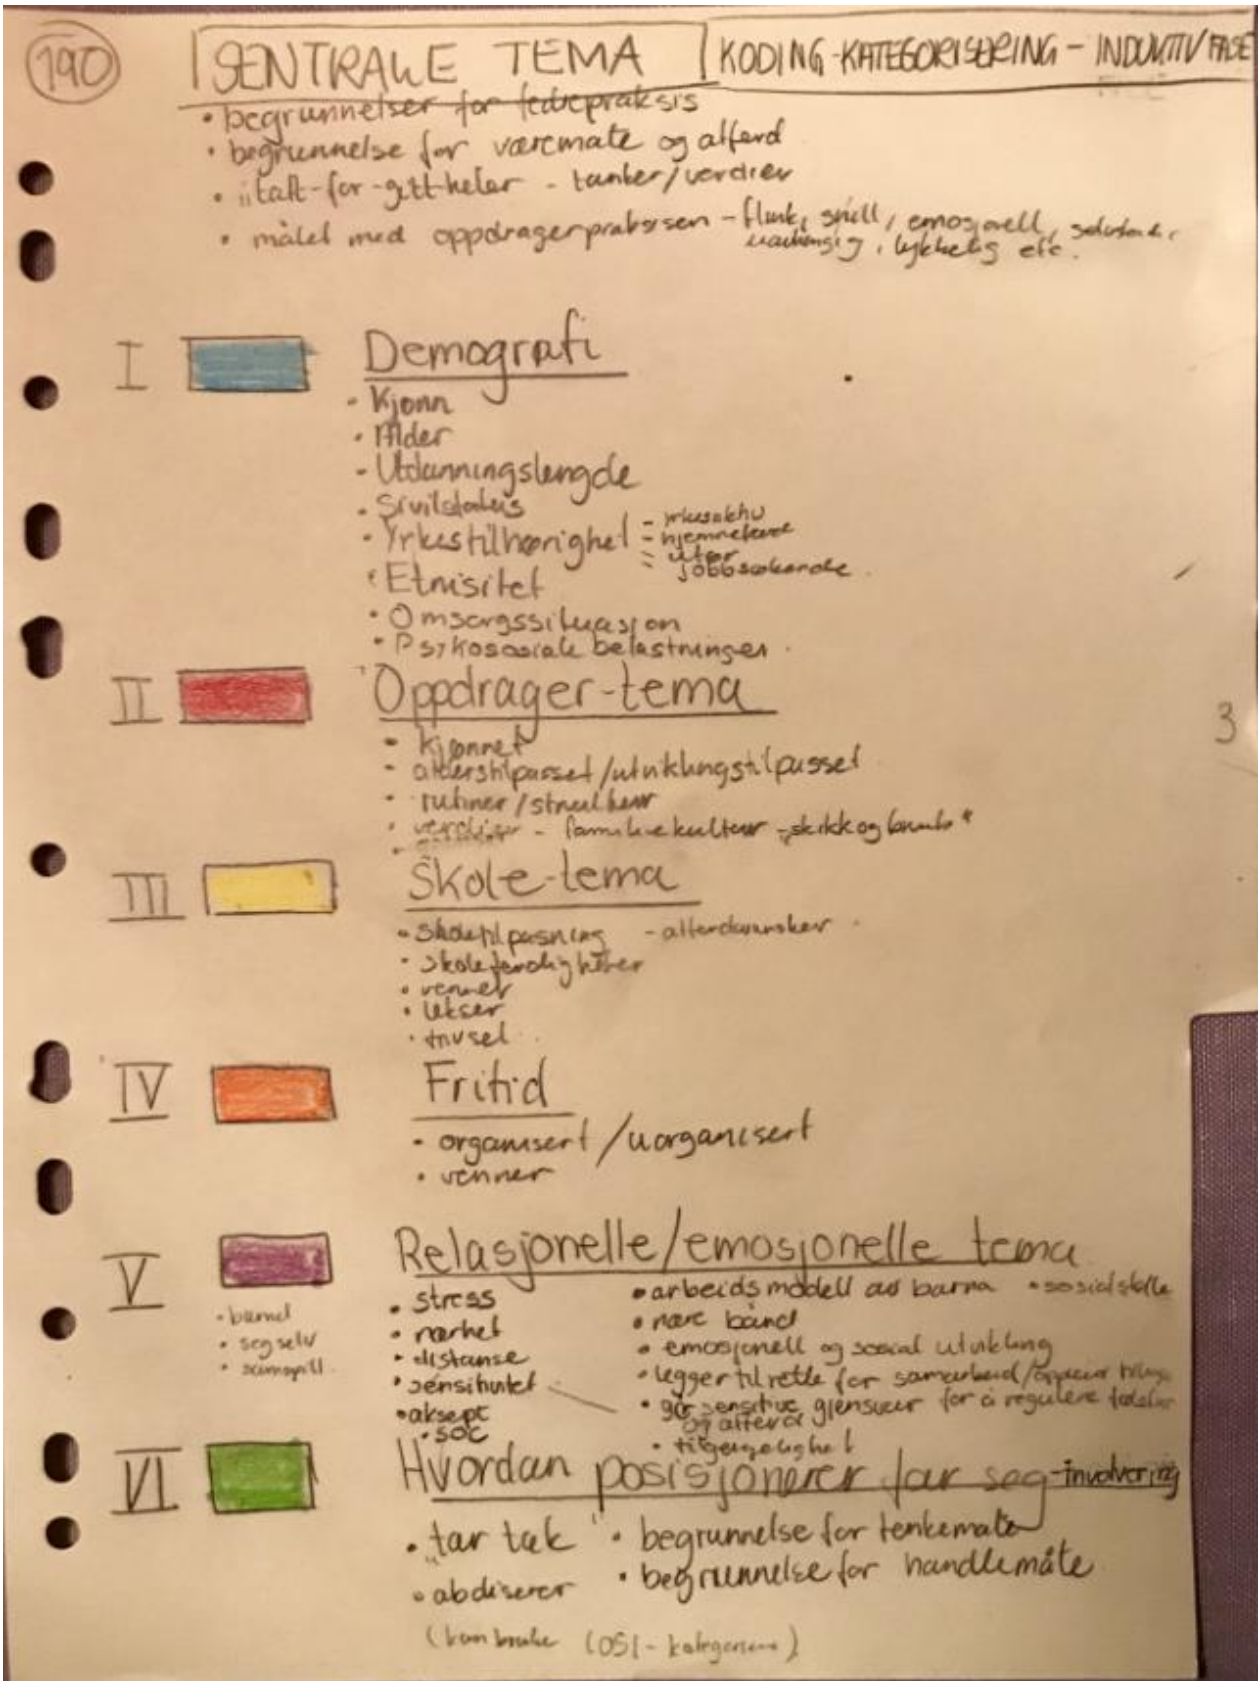 190
SENTRALE TEMA
KODING-KATEGORISERING - INDUKTIV FASE
• begrunnelser for fedrepraksis
• begrunnelse for væremåte og atferd
• "tatt-for-gitt-heter - tanker/verdier
• målet med oppdragerpraksisen - flink, snill, emosjonell,
uavhengig, lykkelig etc.
I Demografi
• Kjønn
• Alder
• Utdanningslengde
• Sivilstatus
• Yrkestilhørighet - yrkesaktiv
- hjemmeværende
- ufør
- jobbsøkende.
• Etnisitet
• Omsorgssituasjon
• Psykososiale belastninger.
II Oppdrager-tema
3
• kjønnet
• alderstilpasset/utviklingstilpasset
• rutiner/struktur
• verdier - familiekultur - skikk og bruk *
III Skole-tema
• skoletilpasning - atferdsvansker.
• skoleferdigheter
• venner
• lekser
• trivsel.
IV Fritid
• organisert/uorganisert
• venner
V Relasjonelle/emosjonelle tema
• barnet
• seg selv
• samspill
• stress
• nærhet
• distanse
• sensitivitet
• aksept
• SOC
• arbeidsmodell av barna • sosial støtte
• nære bånd
• emosjonell og sosial utvikling
• legger til rette for samarbeid/
• gir sensitive gjensvar for å regulere følelser
og atferd
• tilgjengelighet
VI Hvordan posisjonerer far seg - involvering
• "tar tak" • begrunnelse for tenkemåte
• abdiserer • begrunnelse for handlemåte
(kan bruke (OSI-kategoriene)